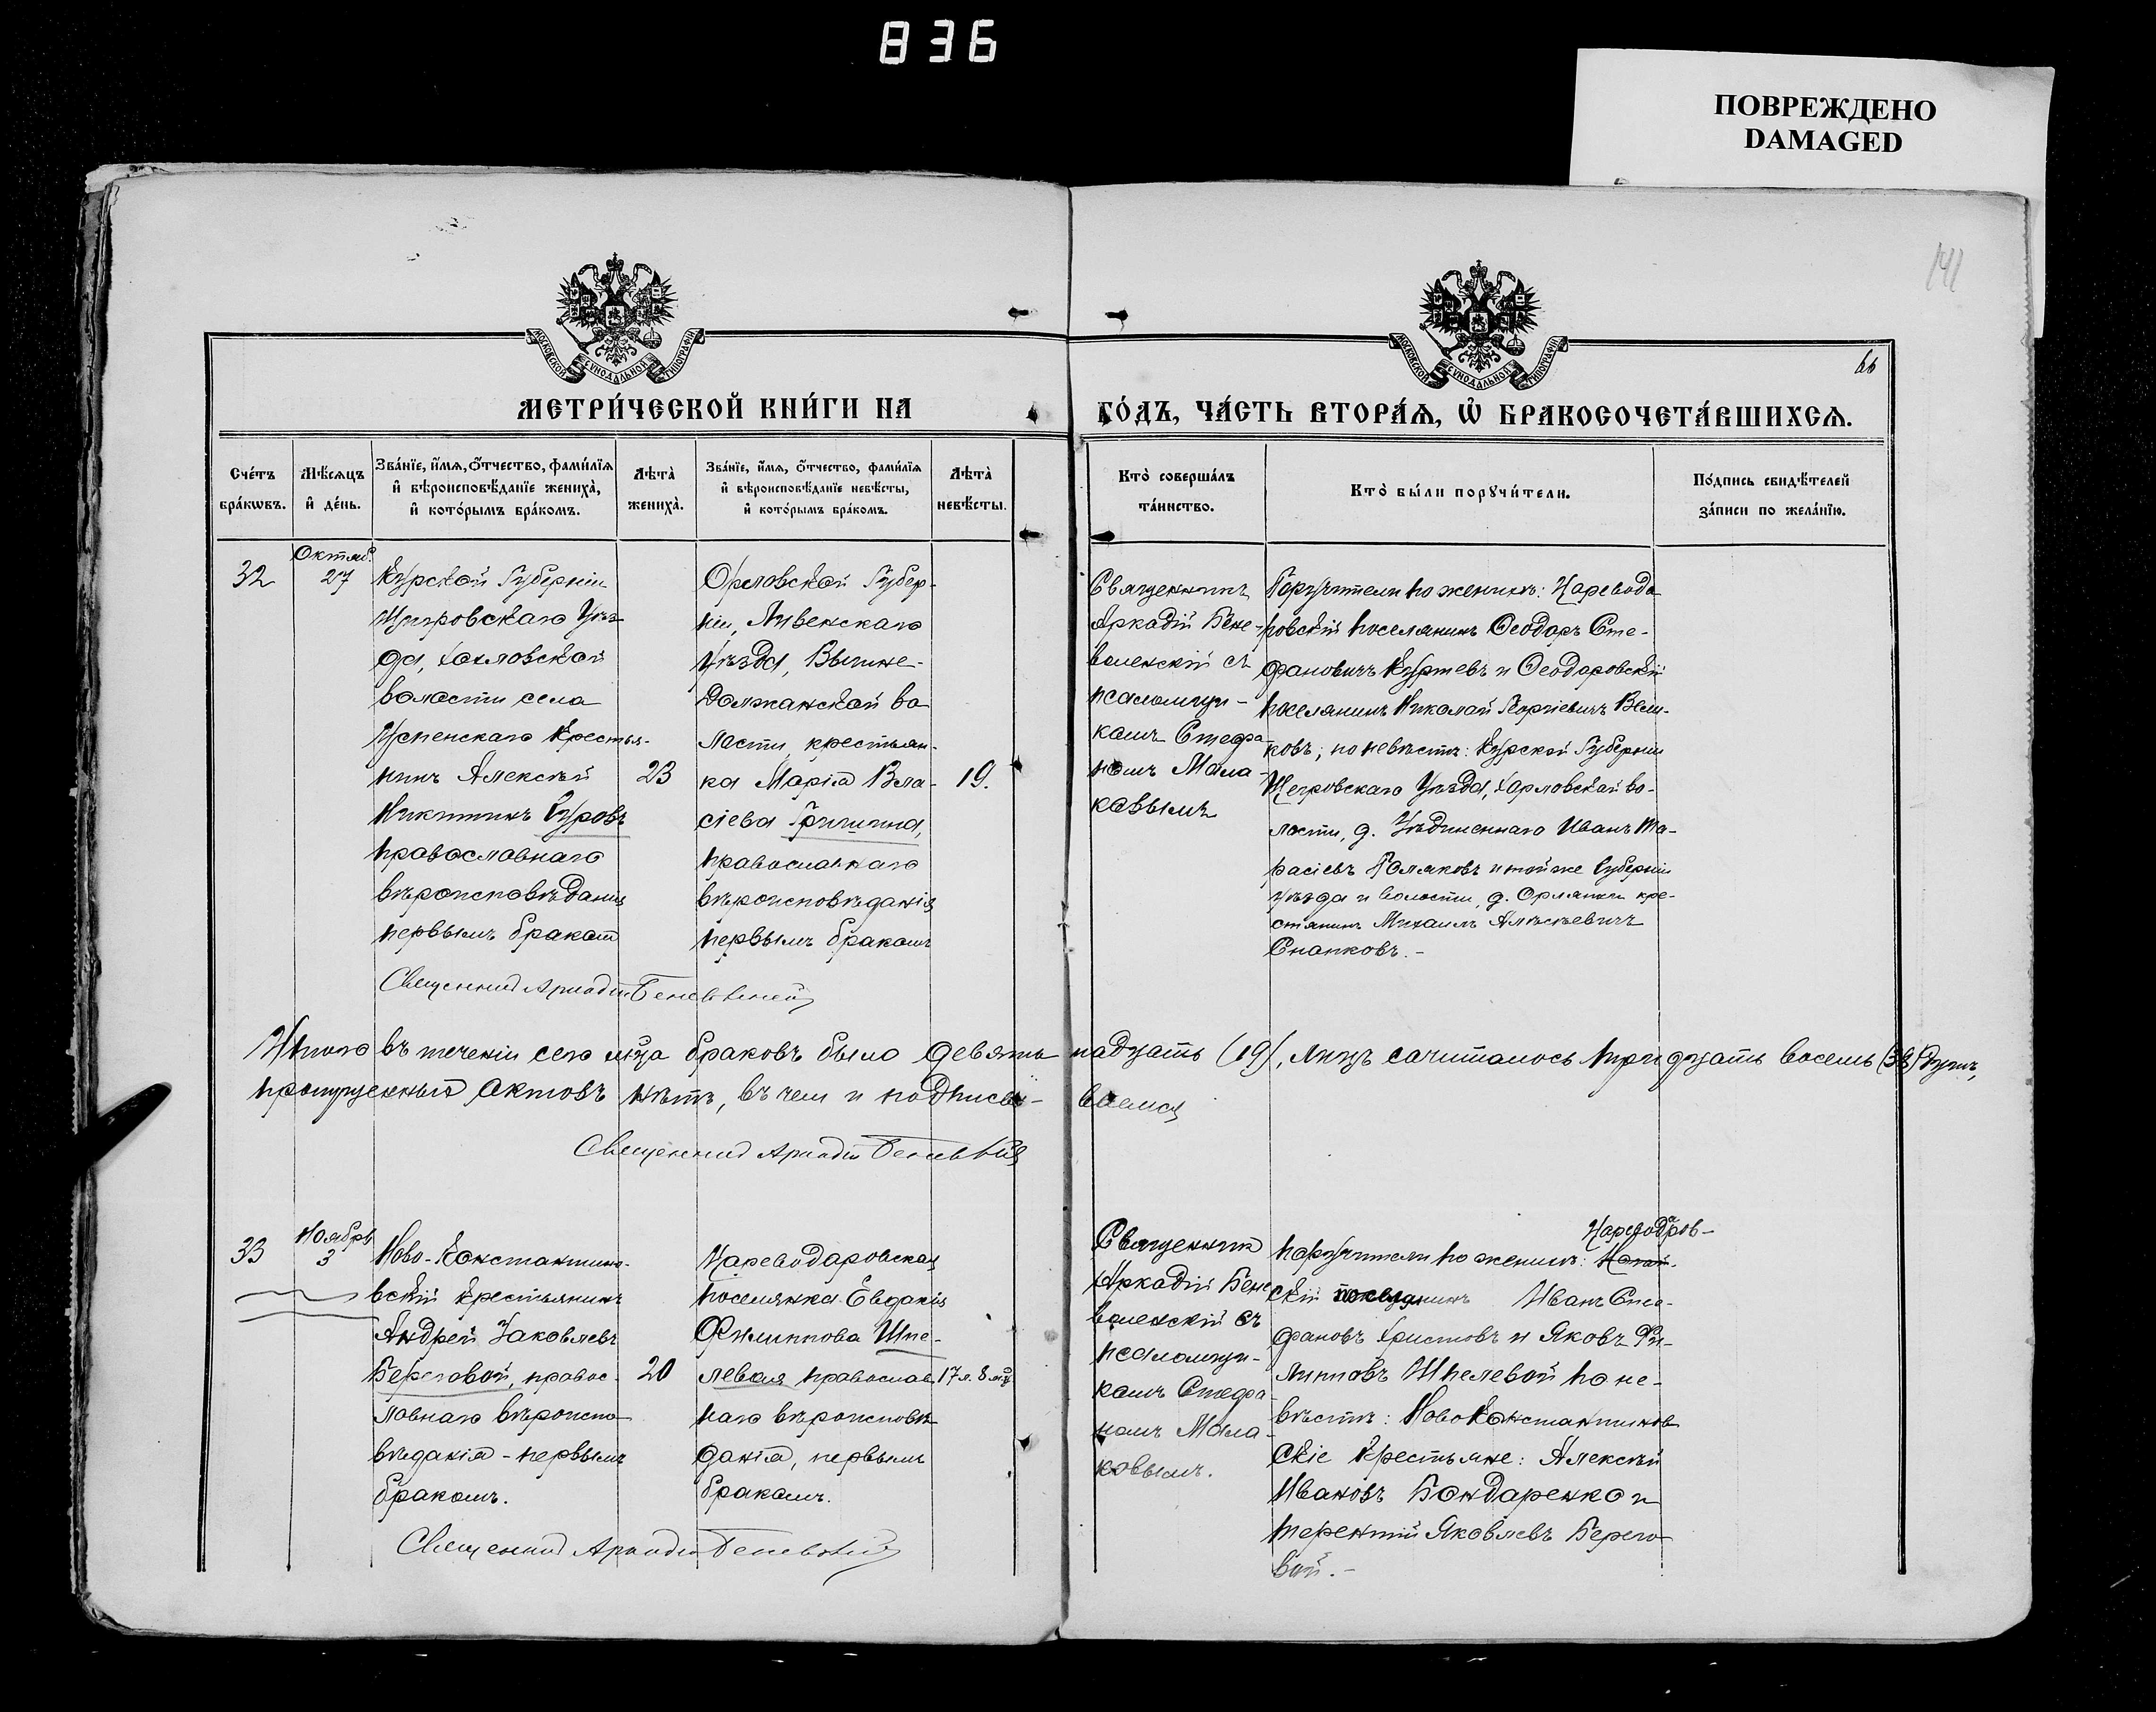 836
ПОВРЕЖДЕНО
DAMAGED
141
66
МОСКОВСКОЙ СѴНОДАЛЬНОЙ ТИПОГРАФІИ
МОСКОВСКОЙ СѴНОДАЛЬНОЙ ТИПОГРАФІИ
МЕТРИ́ЧЕСКОЙ КНИ́ГИ НА
ГО́ДЪ, ЧА́СТЬ ВТОРА́Ѧ, Ѡ҆ БРАКОСОЧЕТА́ВШИХСѦ.
Сче́тъ
бра́кѡвъ.
Мѣ́сѧцъ
и҆ де́нь.
Зва́нїе, и҆́мѧ, ѻ҆́тчество, фами́лїѧ
и҆ вѣроисповѣ́данїе жениха̀,
и҆ кото́рымъ бра́комъ.
Лѣта̀
жениха̀.
Зва́нїе, и҆́мѧ, ѻ҆́тчество, фами́лїѧ
и҆ вѣроисповѣ́данїе невѣ́сты,
и҆ кото́рымъ бра́комъ.
Лѣта̀
невѣ́сты.
Кто̀ соверша́лъ
та́инство.
Кто̀ бы́ли порꙋчи́тели.
По́дпись свидѣ́телей
за́писи по жела́нїю.
32
Октяб.
27
Курской Губерніи
Щигровскаго Уѣз
да, Хохловской
волости села
Успенскаго Крестья-
нинъ Алексѣй
Никитинъ Гуровъ
православнаго
вѣроисповѣданія
первымъ бракомъ
23
Орловской Губер-
ніи, Ливенскаго
Уѣзда, Вышне-
Должанской во
лости, крестьян-
ка Марія Вла-
сіева Гришина,
православнаго
вѣроисповѣданія
первымъ бракомъ
19.
Священникъ
Аркадій Бене-
воленскій съ
псаломщи-
комъ Стефа
номъ Мала-
ковымъ
Поручители по женихѣ: Цареводо
ровскій поселянинъ Ѳеодоръ Сте-
фановичъ Куртевъ и Ѳеодоровскій
поселянинъ Николай Георгіевичъ Вели-
ковъ; по невѣстѣ: Курской Губерніи
Щегровскаго Уѣзда, Хорловской во-
лости, д. Уѣдиненнаго Иванъ Та-
расіевъ Поляковъ и той же Губерніи
уѣзда и волости, д. Орлянки кре-
стянинъ Михаилъ Алексѣевичъ
Снапковъ.-
Священникъ Аркадій Беневоленскій
Итого въ теченіи сего м-ца браковъ было девять надцать (19), лицъ считалось тридцать восемь (38) душъ,
пропущенныхъ актовъ нѣтъ, въ чем и подписы- ваемся
Священникъ Аркадій Беневоленскій
33
Ноябрь
3
Ново-Константино-
вскій крестьянинъ
Андрей Іаковлевъ
Береговой, правос-
лавнаго вѣроиспо
вѣданія - первымъ
бракомъ.
20
Цареводаровская
поселянка Евдокія
Филиппова Шпе-
левая православ-
наго вѣроисповѣ
данія, первымъ
бракомъ.
17 л. 8 м-ц
Священникъ
Аркадій Бене
воленскій съ
псаломщи-
комъ Стефа
номъ Мала-
ковымъ.
Цареводаров-
поручители по женихѣ:
скій поселянинъ Иванъ Сте-
фановъ Христовъ и Яковъ Фи-
липповъ Шпелевой по не-
вѣстѣ: Ново Константинов
скіе крестьяне: Алексѣй
Ивановъ Бондаренко и
Терентій Яковлевъ Берего
вой.-
Священникъ Аркадій Беневоленскій